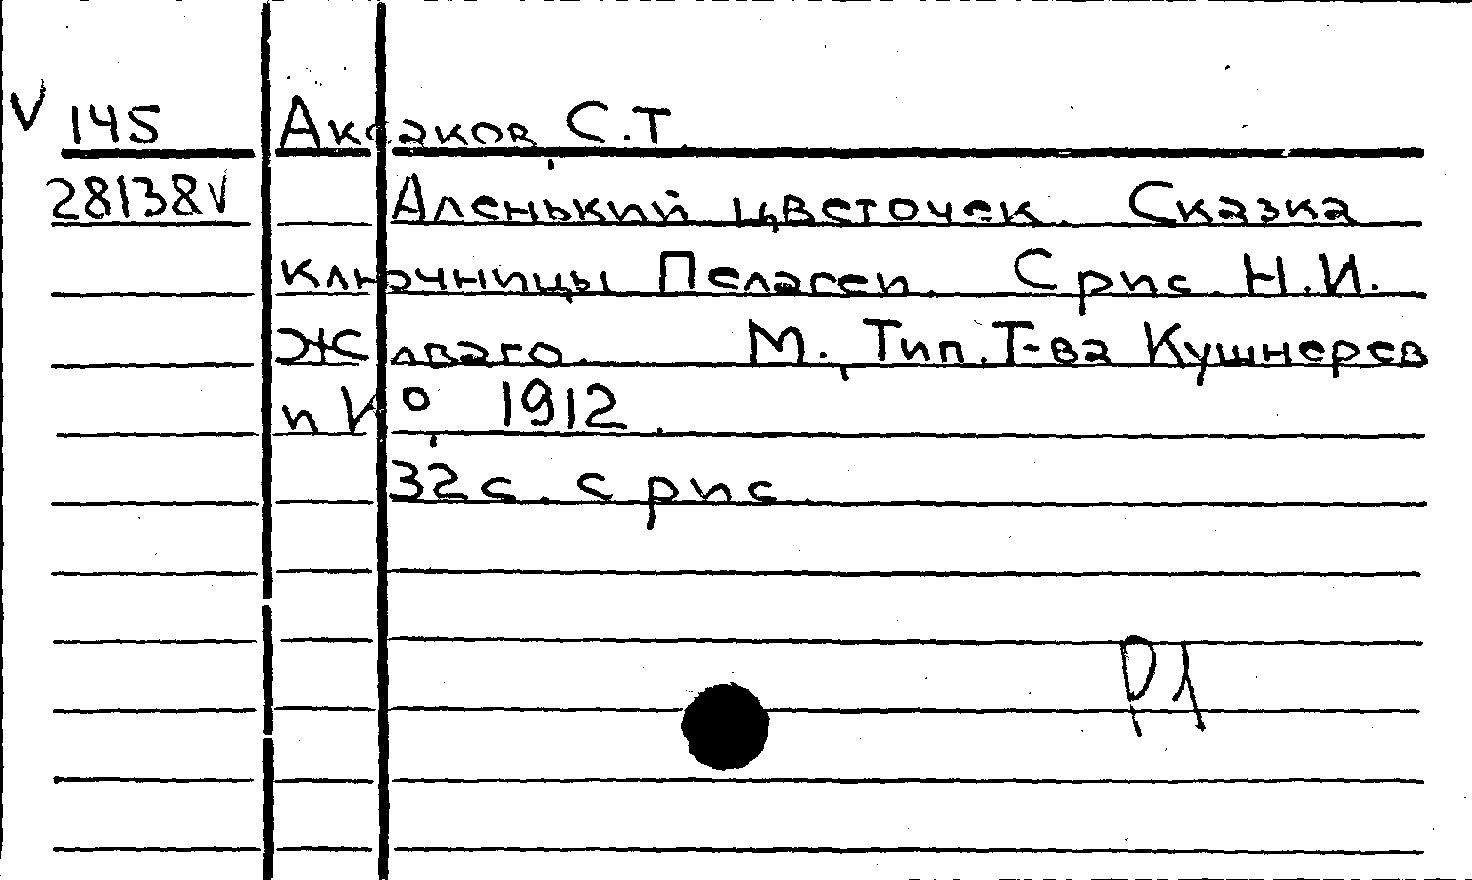 V 145 Аксаков, С.Т.
28138V Аленький цветочек. Сказка
ключницы Пелагеи. С рис. Н.И.
Живаго. М., Тип. Т-ва Кушнерев
и К°, 1912.
32 с. с рис.